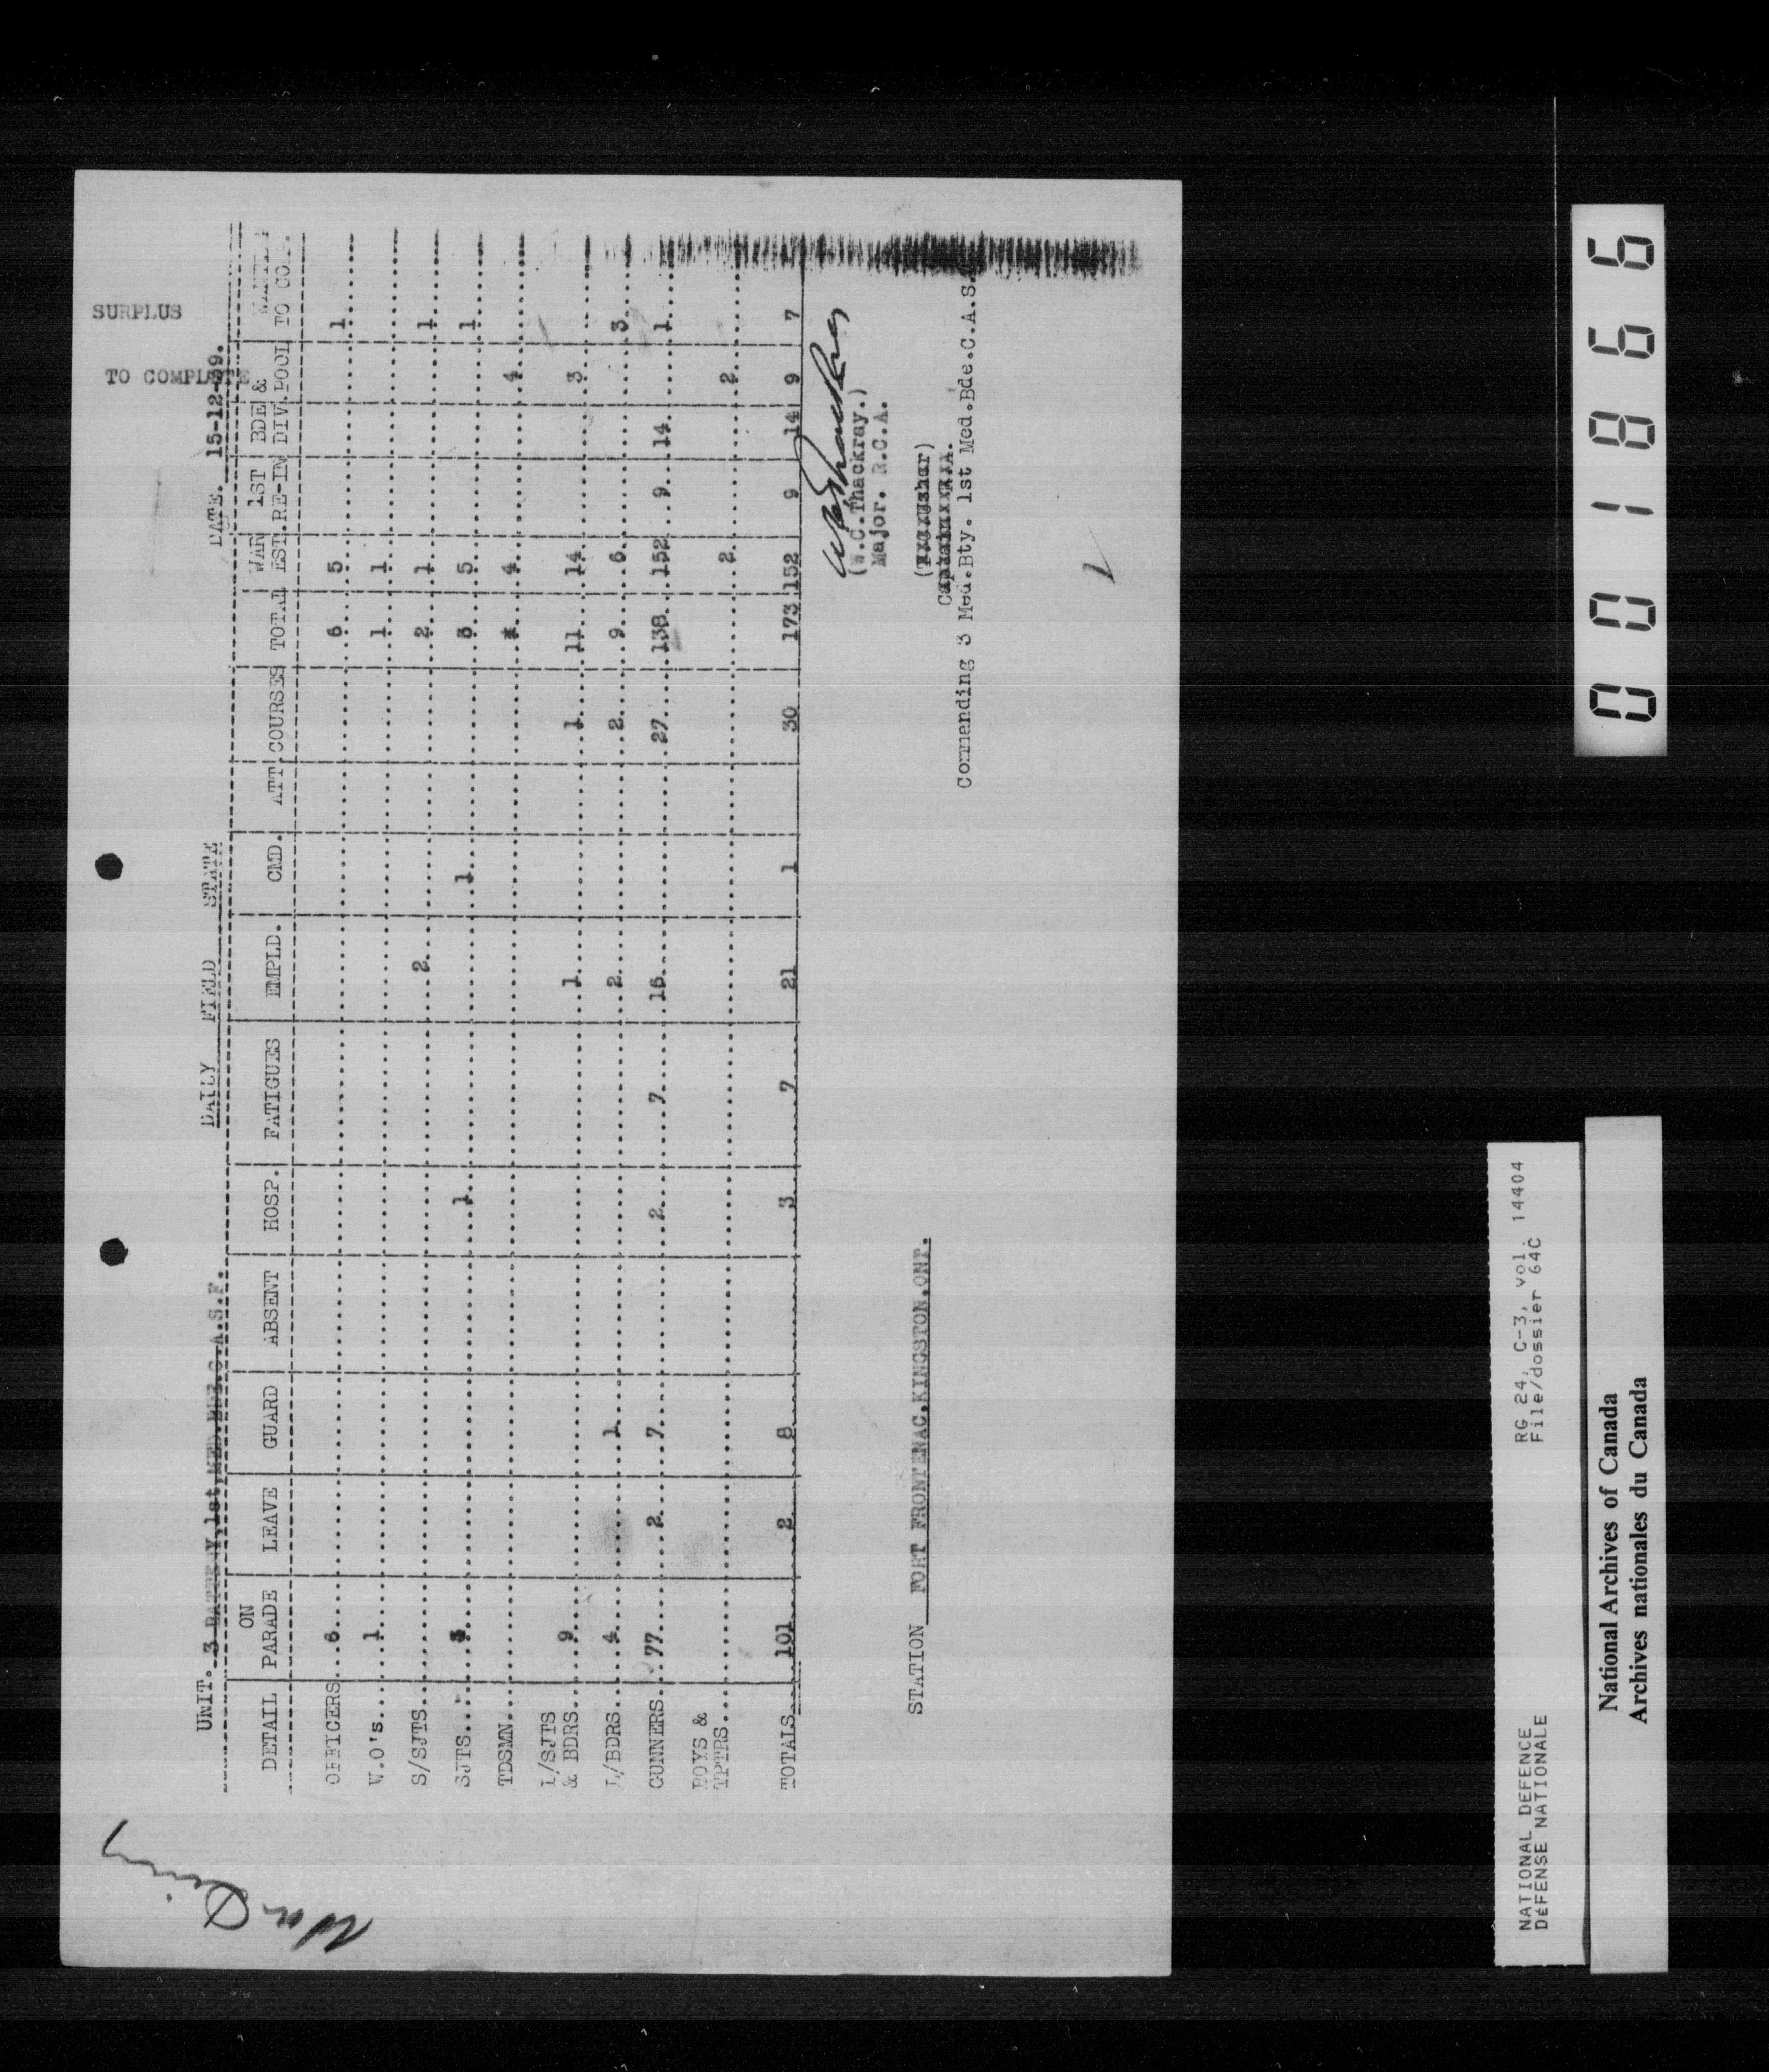 War Diary
SURPLUS
TO COMPLETE
UNIT. 3 BATTERY, 1st, MED. BDE. C.A.S.F. DAILY FIELD STATE DATE. 15-12-39.
ON WAR 1ST BDE & WANTING
DETAIL PARADE LEAVE GUARD ABSENT HOSP. FATIGUES EMPLD. CMD. ATT COURSES TOTAL EST. RE-IN DIV. POOL TO CO
OFFICERS 6 6 5 1
W.O's 1 1 1
S/SJTS 2 2 1 1
SJTS 1 1 5 1
TDSMN 4 4
L/SJTS
& BDRS 9 1 1 11 14 3
L/BDRS 4 1 2 2 9 6 3
GUNNERS 77 2 7 2 7 16 27 138 152 9 14 1
BOYS &
TPTRS 2 2
TOTALS 101 2 8 3 7 21 1 30 173 152 9 14 9 7
(W.C.Thackray.)
Major. R.C.A.
STATION FORT FRONTENAC, KINGSTON, ONT.
Commending 3 Med.Bty. 1st Med.Bde.C.A.S.
001866
NATIONAL DEFENCE RG 24, C-3, vol. 14404
DÉFENSE NATIONALE File/dossier 64C
National Archives of Canada
Archives nationales du Canada